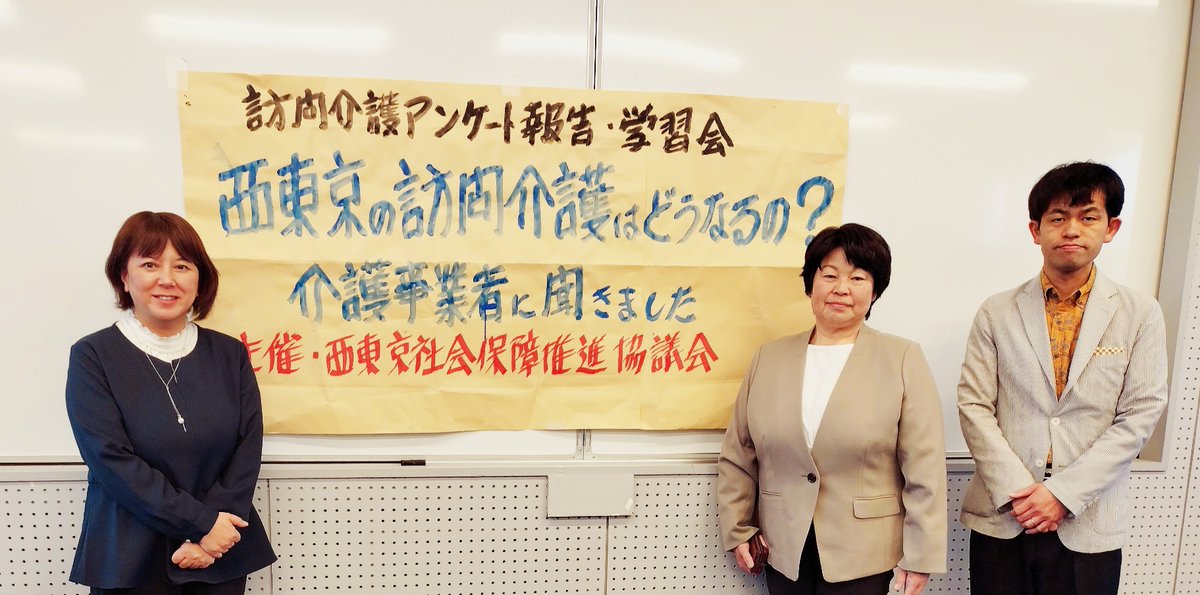 訪問介護アンケート報告・学習会
西東京の訪問介護はどうなるの?
介護事業者に聞きました
主催・西東京社会保障推進協議会